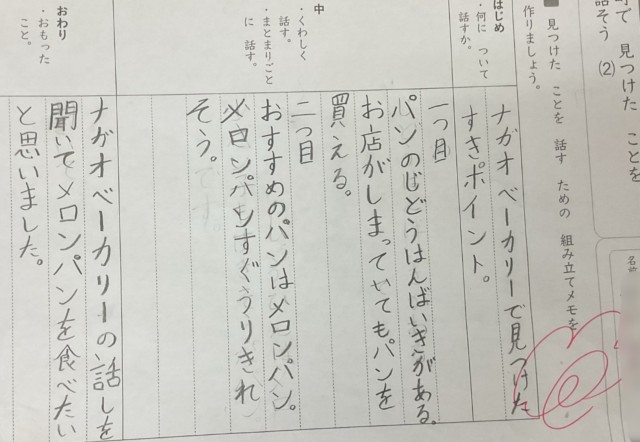 町で 見つけた ことを
話そう (2)
名前
見つけた ことを 話す ための 組み立てメモを
作りましょう。
はじめ
・何に ついて
話すか。
ナガオベーカリーで見つけた
すきポイント。
中
・くわしく
話す。
・まとまりごと
に 話す。
一つ目
パンのじどうはんばいきがある。
お店がしまっていてもパンを
買える。
二つ目
おすすめのパンはメロンパン。
メロンパンもすぐうりきれ
そう。
おわり
・おもった
こと。
ナガオベーカリーの話しを
聞いてメロンパンを食べたい
と思いました。